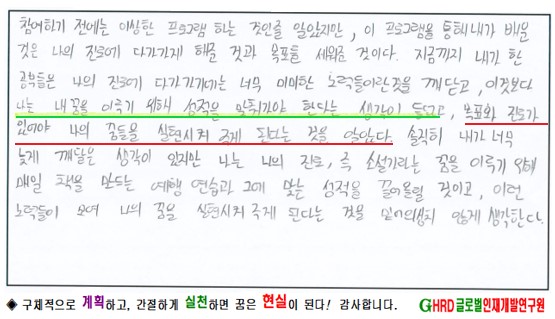 참여하기 전에는 이상한 프로그램 하는 것인줄 알았지만, 이 프로그램을 통해 내가 배운
것은 나의 진로에 다가가게 해줄 것과 목표를 세워준 것이다. 지금까지 내가 한
공부들은 나의 진로에 다가가기에는 너무 미미한 노력들이란것을 깨닫고, 이것보다
나는 내 꿈을 이루기 위해 성적을 맞춰가야 한다는 생각이 들었고, 목표와 진로가
있어야 나의 꿈들을 실현시켜 주게 된다는 것을 알았다. 솔직히 내가 너무
늦게 깨달은 생각이 있지만 나는 나의 진로, 즉 소설가라는 꿈을 이루기 위해
매일 책을 만드는 예행 연습과 그에 맞는 성적을 끌어올릴 것이고, 이런
노력들이 모여 나의 꿈을 실현시켜 주게 된다는 것을 믿어 않게 생각한다.
◈ 구체적으로 계획하고, 간절하게 실천하면 꿈은 현실이 된다! 감사합니다. GHRD 글로벌인재개발연구원